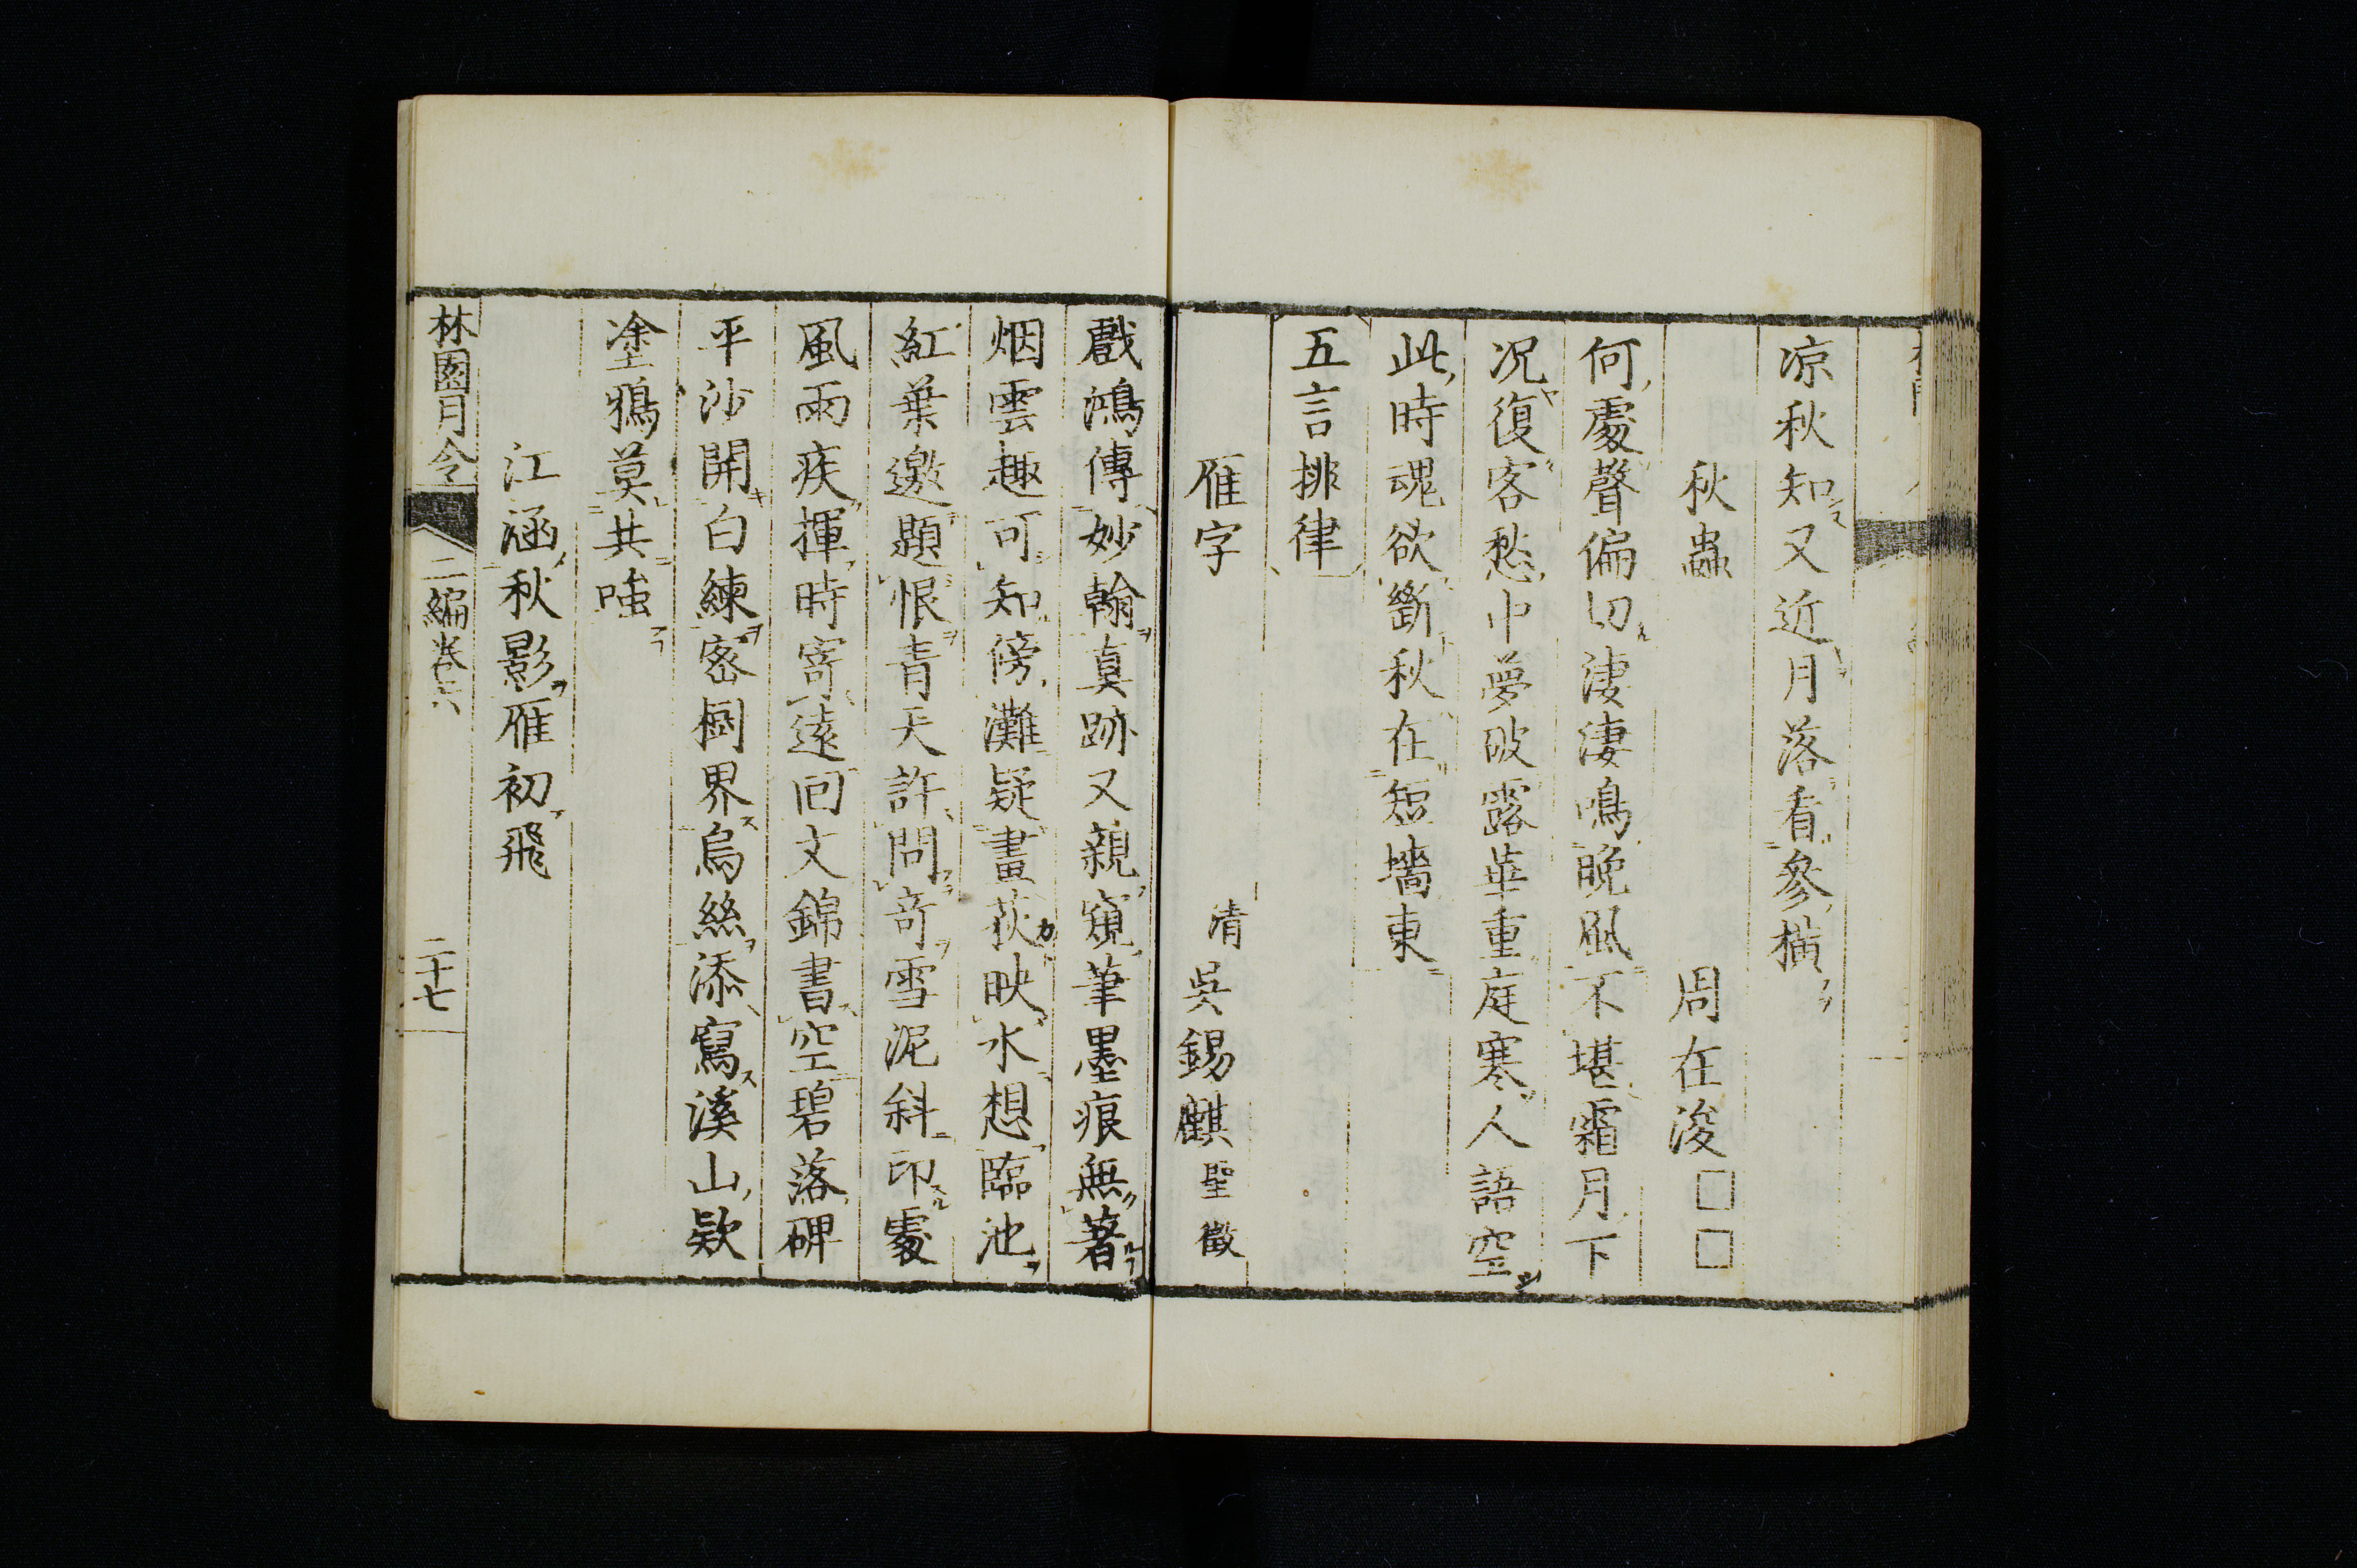 凉秋知又近月落看參横
秋蟲　周在浚□□
何處聲偏切淒淒鳴晩風不堪霜月下
况復客愁中夢破露華重庭寒人語空
此時魂欲斷秋在短墻東
五言排律
雁字　清吳錫麒聖徵
戲鴻傳妙翰真跡又親窺筆墨痕無著
烟雲趣可知傍灘疑畫荻映水想臨池
紅葉邀題恨青天許問奇雪泥斜印處
風雨疾揮時寄遠回文錦書空碧落碑
平沙開白練密樹界烏絲添寫溪山欵
塗鴉莫共嗤
江涵秋影雁初飛
林園月令　二編卷六　二十七